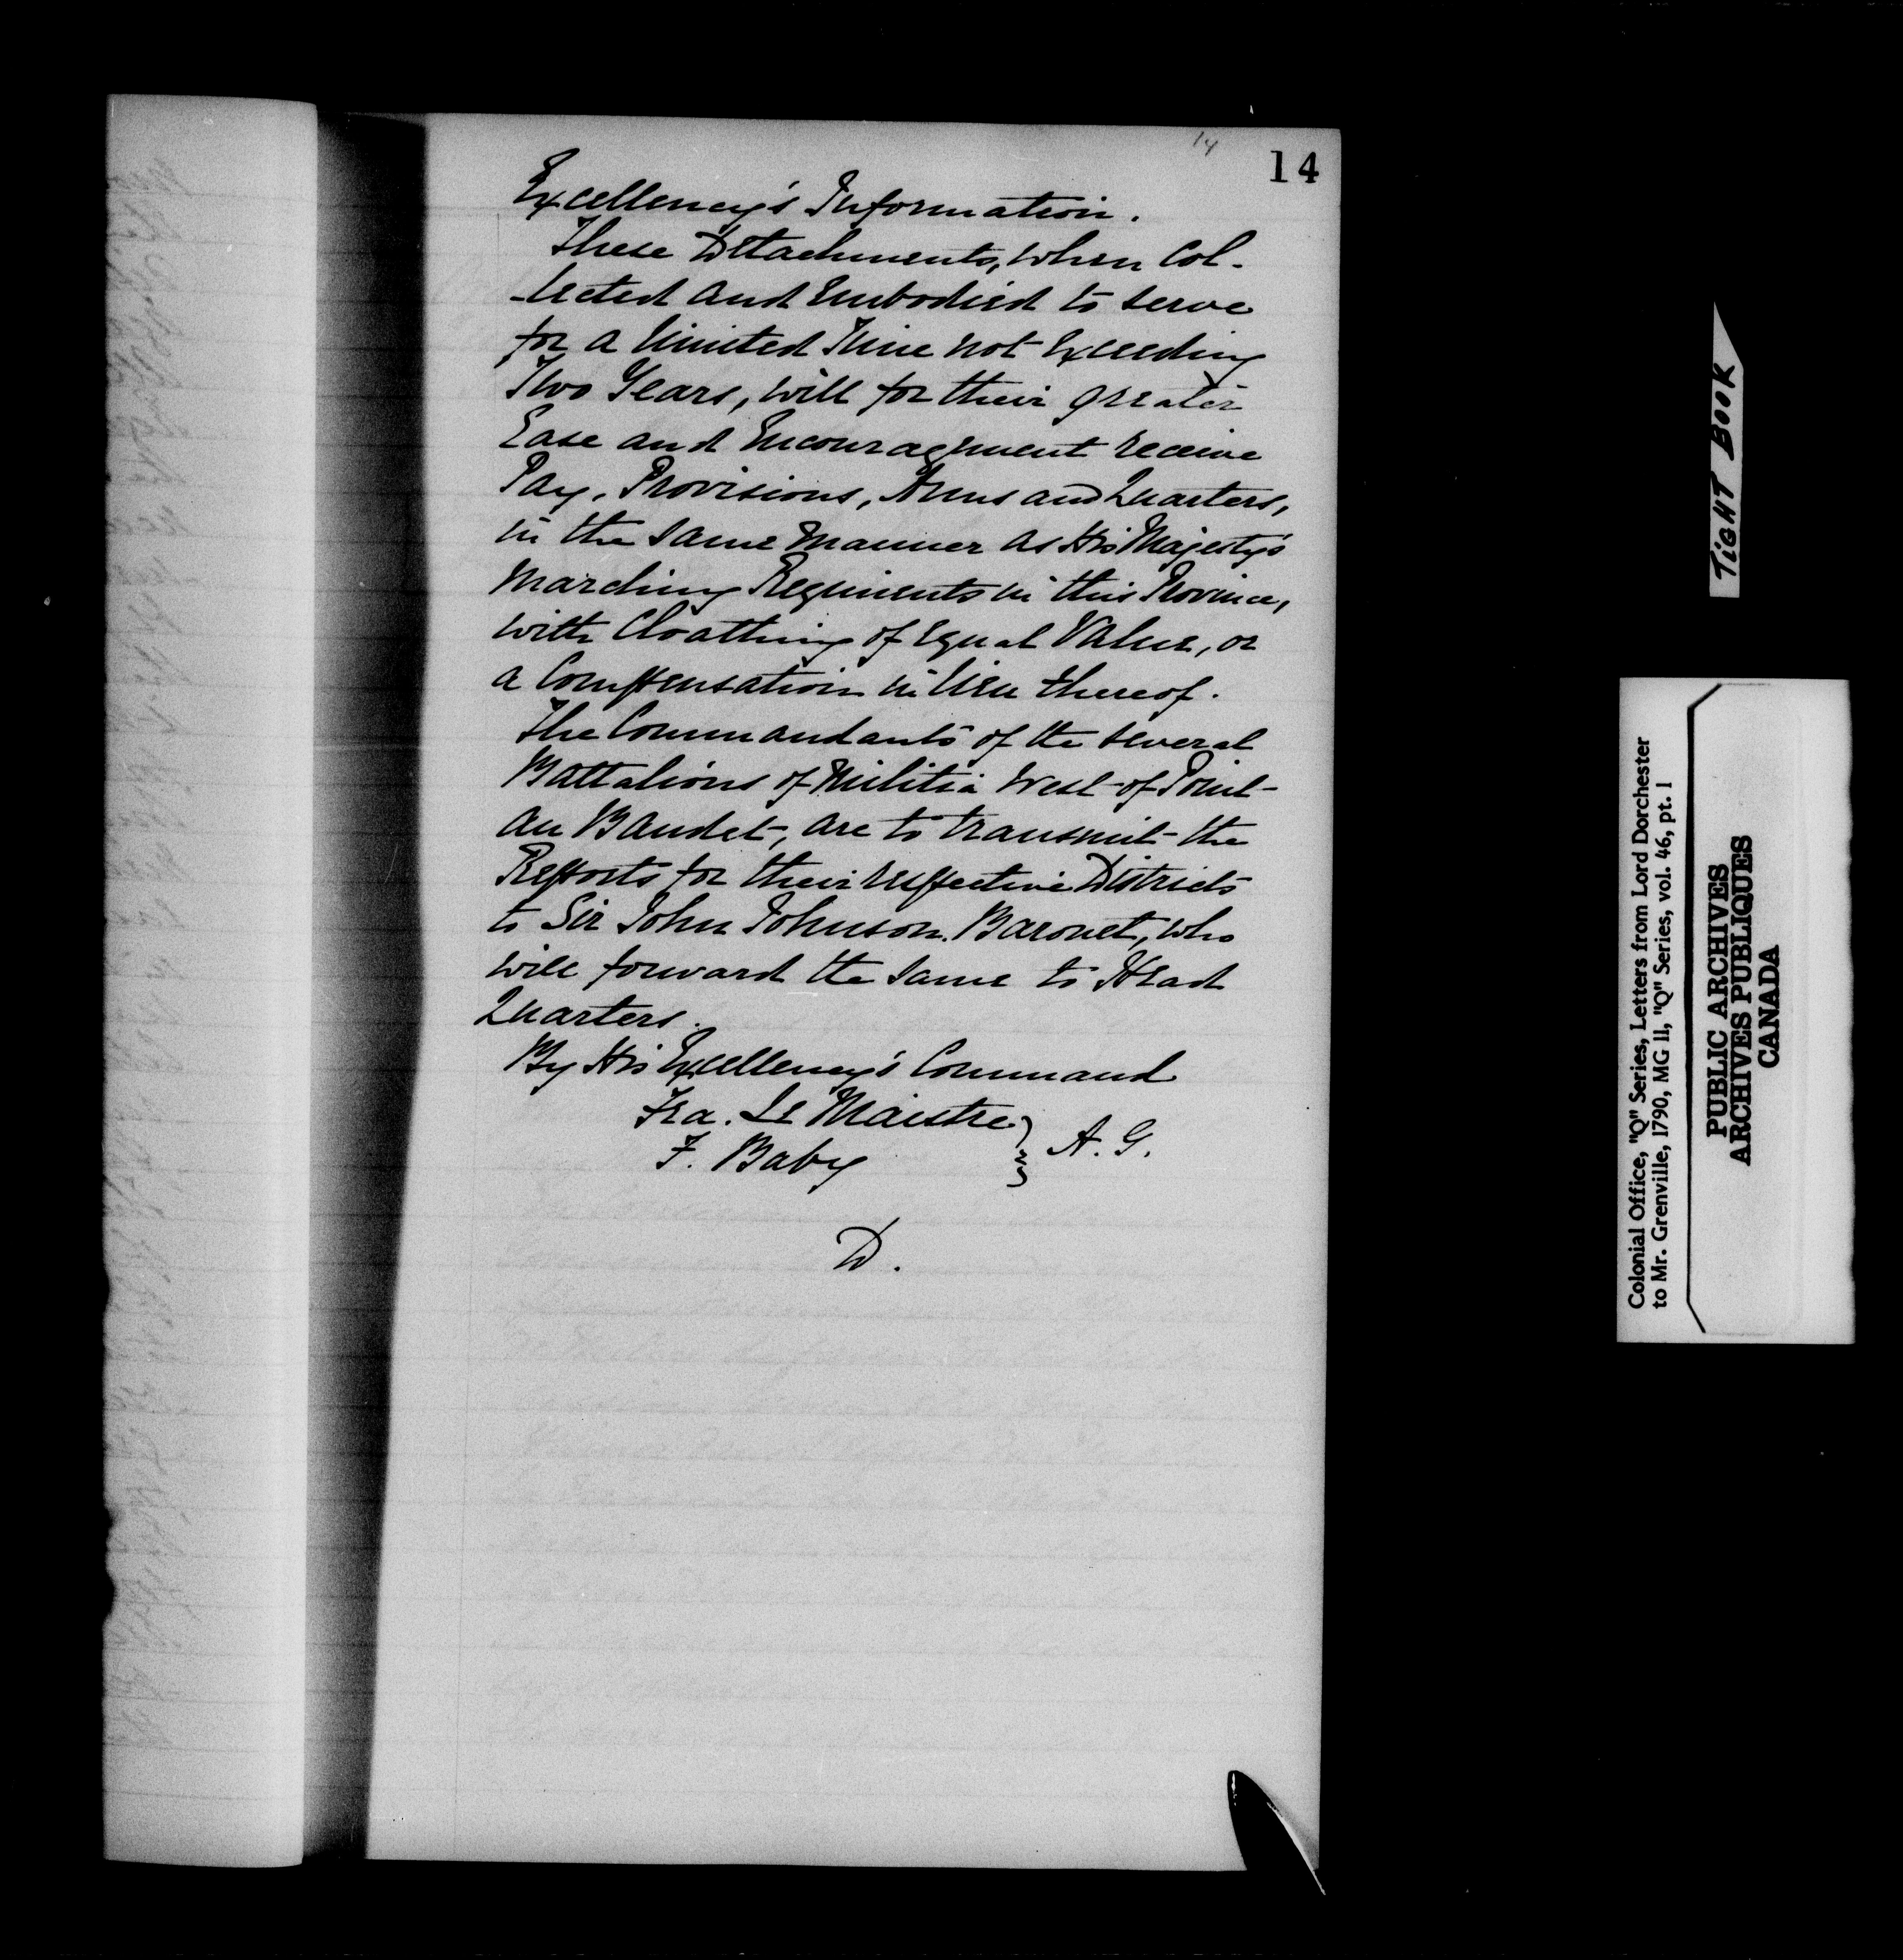 14
14
Excellency's Information.
These Detachments, when Col-
-lected and Embodied to serve
for a limited Time not Exceeding
Two Years, will for their greater
Ease and Encouragement receive
Pay, Provisions, Arms and Quarters,
in the same manner as His Majesty's
Marching Regiments in this Province,
with Cloathing of equal Value, or
a Compensation in lieu thereof.
The Commandants of the several
Battalions of Militia West of Point
au Baudet, are to transmit the
Reports for their respective Districts
to Sir John Johnson. Baronet, who
will forward the same to Head
Quarters.
By His Excellency's Command
Fra. Le Maistre } A. G.
F. Baby
D.
TIGHT BOOK
Colonial Office, "Q" Series, Letters from Lord Dorchester
to Mr. Grenville, 1790, MG 11, "Q" Series, vol. 46, pt. 1
PUBLIC ARCHIVES
ARCHIVES PUBLIQUES
CANADA